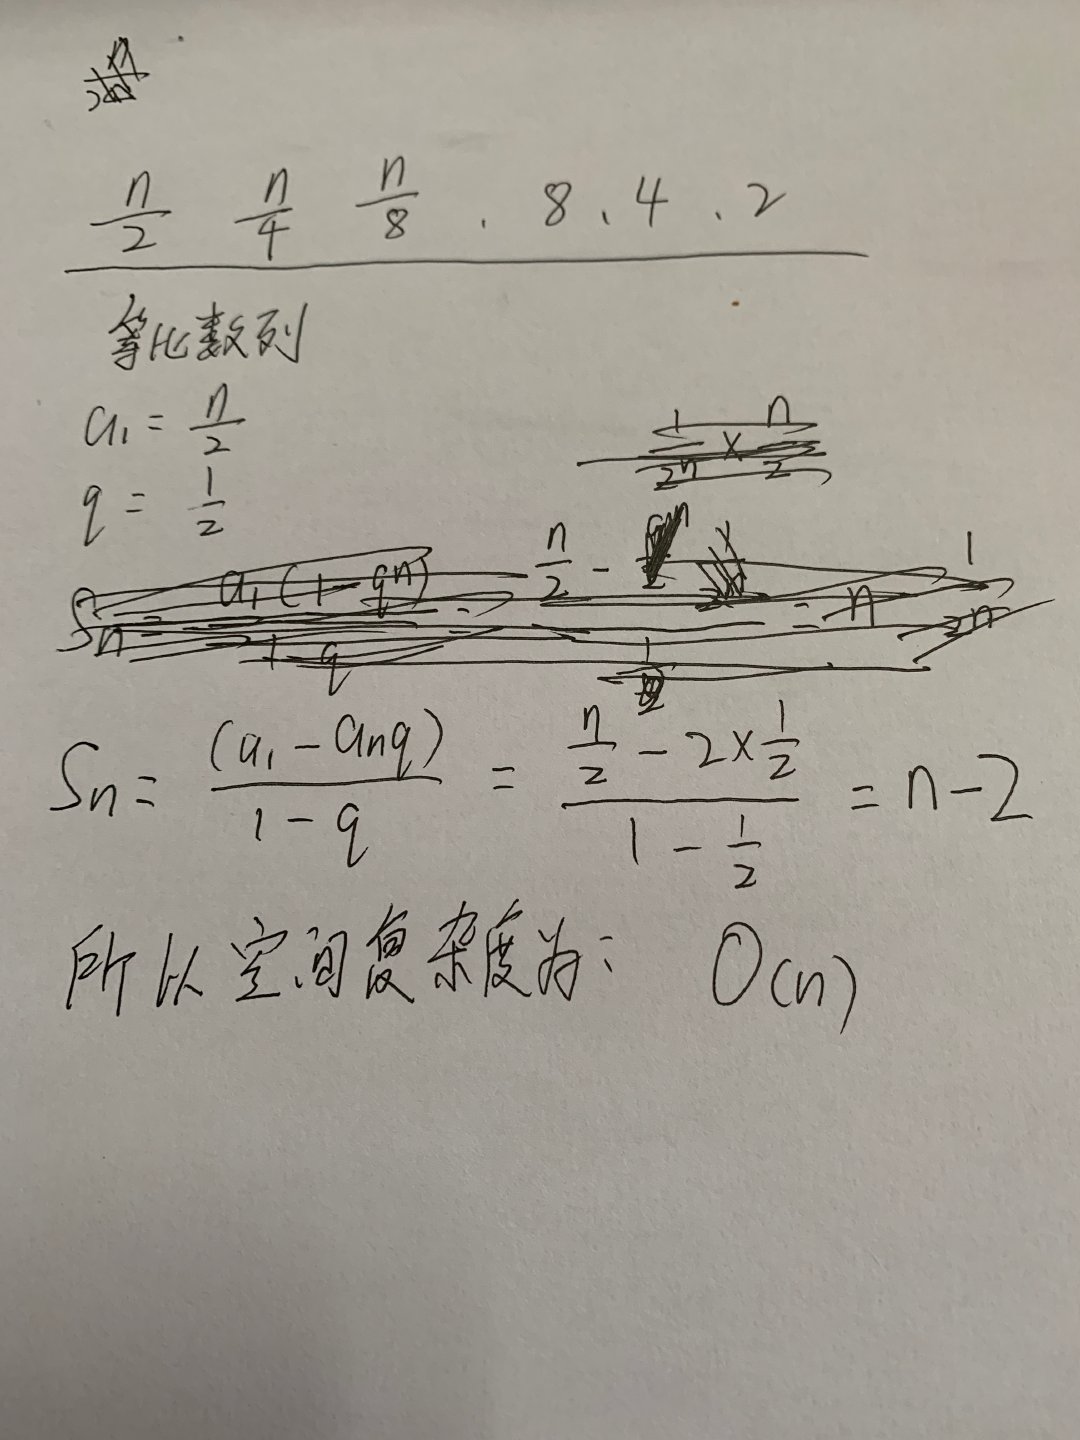 n/2 n/4 n/8 . 8、4、2
等比数列
a₁ = n/2
q = 1/2
Sn = (a₁ - anq) / (1 - q) = (n/2 - 2×1/2) / (1 - 1/2) = n-2
所以空间复杂度为: O(n)